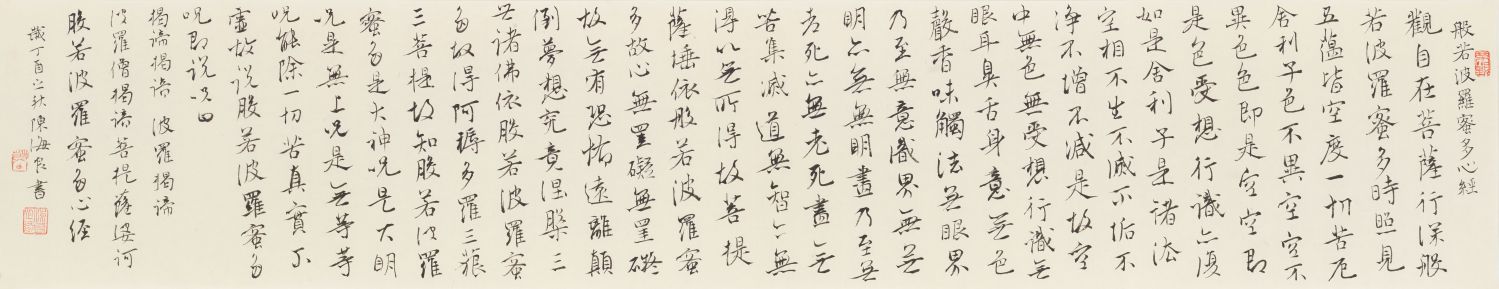 般若波羅蜜多心經
觀自在菩薩行深般
若波羅蜜多時照見
五蘊皆空度一切苦厄
舍利子色不異空空不
異色色即是空空即
是色受想行識亦復
如是舍利子是諸法
空相不生不滅不垢不
淨不增不減是故空
中無色無受想行識無
眼耳鼻舌身意無色
聲香味觸法無眼界
乃至無意識界無無
明亦無無明盡乃至無
老死亦無老死盡無
苦集滅道無智亦無
得以無所得故菩提
薩埵依般若波羅蜜
多故心無罣礙無罣礙
故無有恐怖遠離顛
倒夢想究竟涅槃三
世諸佛依般若波羅蜜
多故得阿耨多羅三藐
三菩提故知般若波羅
蜜多是大神咒是大明
咒是無上咒是無等等
咒能除一切苦真實不
虛故說般若波羅蜜多
咒即說咒曰
揭諦揭諦 波羅揭諦
波羅僧揭諦菩提薩婆訶
般若波羅蜜多心經
歲丁酉之秋陳海良書